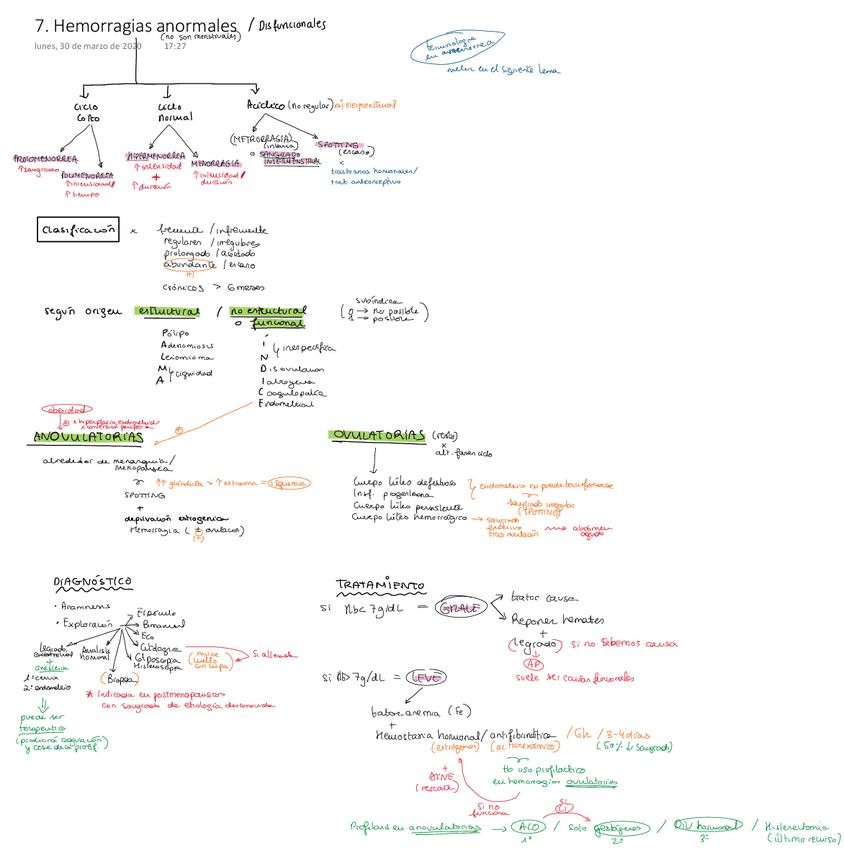 7. Hemorragias anormales / Disfuncionales
(no son menstruales)
lunes, 30 de marzo de 2020 17:27
terminología
en amenorrea
en el siguiente tema
ciclo
corto
ciclo
normal
Acíclico (no regular) ej intermenstrual
PROIOMENORREA
↑sangrado
POLIMENORREA
↑intensidad/
↑tiempo
HIPERMENORREA
↑intensidad
+
↑duración
MENORRAGIA
↑intensidad/
duración
(METRORRAGIA)
(intensa)
o SANGRADO
INTERMENSTRUAL
SPOTTING
(escaso)
x
trastornos hormonales/
trat anticonceptivo
Clasificación x
frecuencia / infrecuente
regulares / irregulares
prolongado / acortado
abundante / escaso
crónicos > 6 meses
según origen estructural / no estructural
o funcional
subíndice
(0 → no posible
1 → posible)
Pólipo
Adenomiosis
Leiomioma
Malignidad
I
N
inespecífica
Disovulación
Iatrogenia
Coagulopatía
Endometrial
obesidad
⊕ x hiperplasia endometrial
x conversión periférica
ANOVULATORIAS
alrededor de menarquia/
menopausia
SPOTTING
↑↑ glándula > ↑ estroma = isquemia
+
deprivación estrogénica
Hemorragia (± ovulación)
OVULATORIAS (resto)
x
alt. fases ciclo
Cuerpo lúteo defectuoso
Insf. progesterona
Cuerpo lúteo persistente
Cuerpo lúteo hemorrágico → sangrado
excesivo
tras ovulación
abdomen
agudo
endometrio no puede transformarse
sangrado irregular
(SPOTTING)
DIAGNÓSTICO
• Anamnesis
• Exploración
Espéculo
Bimanual
Eco
Citología
Colposcopia
Histeroscopia
(mirar
cuello
con lupa)
Si alterada
legrado
endometrial
+
anestesia
1º: cervix
2º: endometrio
Analisis
hormonal
(Biopsia)
* Indicada en postmenopausicas
con sangrado de etiología desconocida
puede ser
terapéutico
(producirá coagulación
y cese de la prolif)
TRATAMIENTO
Si Hb < 7g/dL = GRAVE
tratar causa
Reponer hematies
+
(legrado) si no sabemos causa
AP
suele ser causas funcionales
si Hb > 7g/dL = LEVE
tratar anemia (Fe)
+
Hemostasia hormonal / antifibrinolítica / 6h / 3-4 días
(estrógenos) (ac. tranexámico) (50% ↓ sangrado)
+
AINE
(rescate)
No uso profiláctico
en hemorragias ovulatorias
Si no
funciona
Si
CI
Profilaxis en anovulatorias → ACO / Solo gestágenos / DIU hormonal / Histerectomía
1º 2º 3º (último recurso)